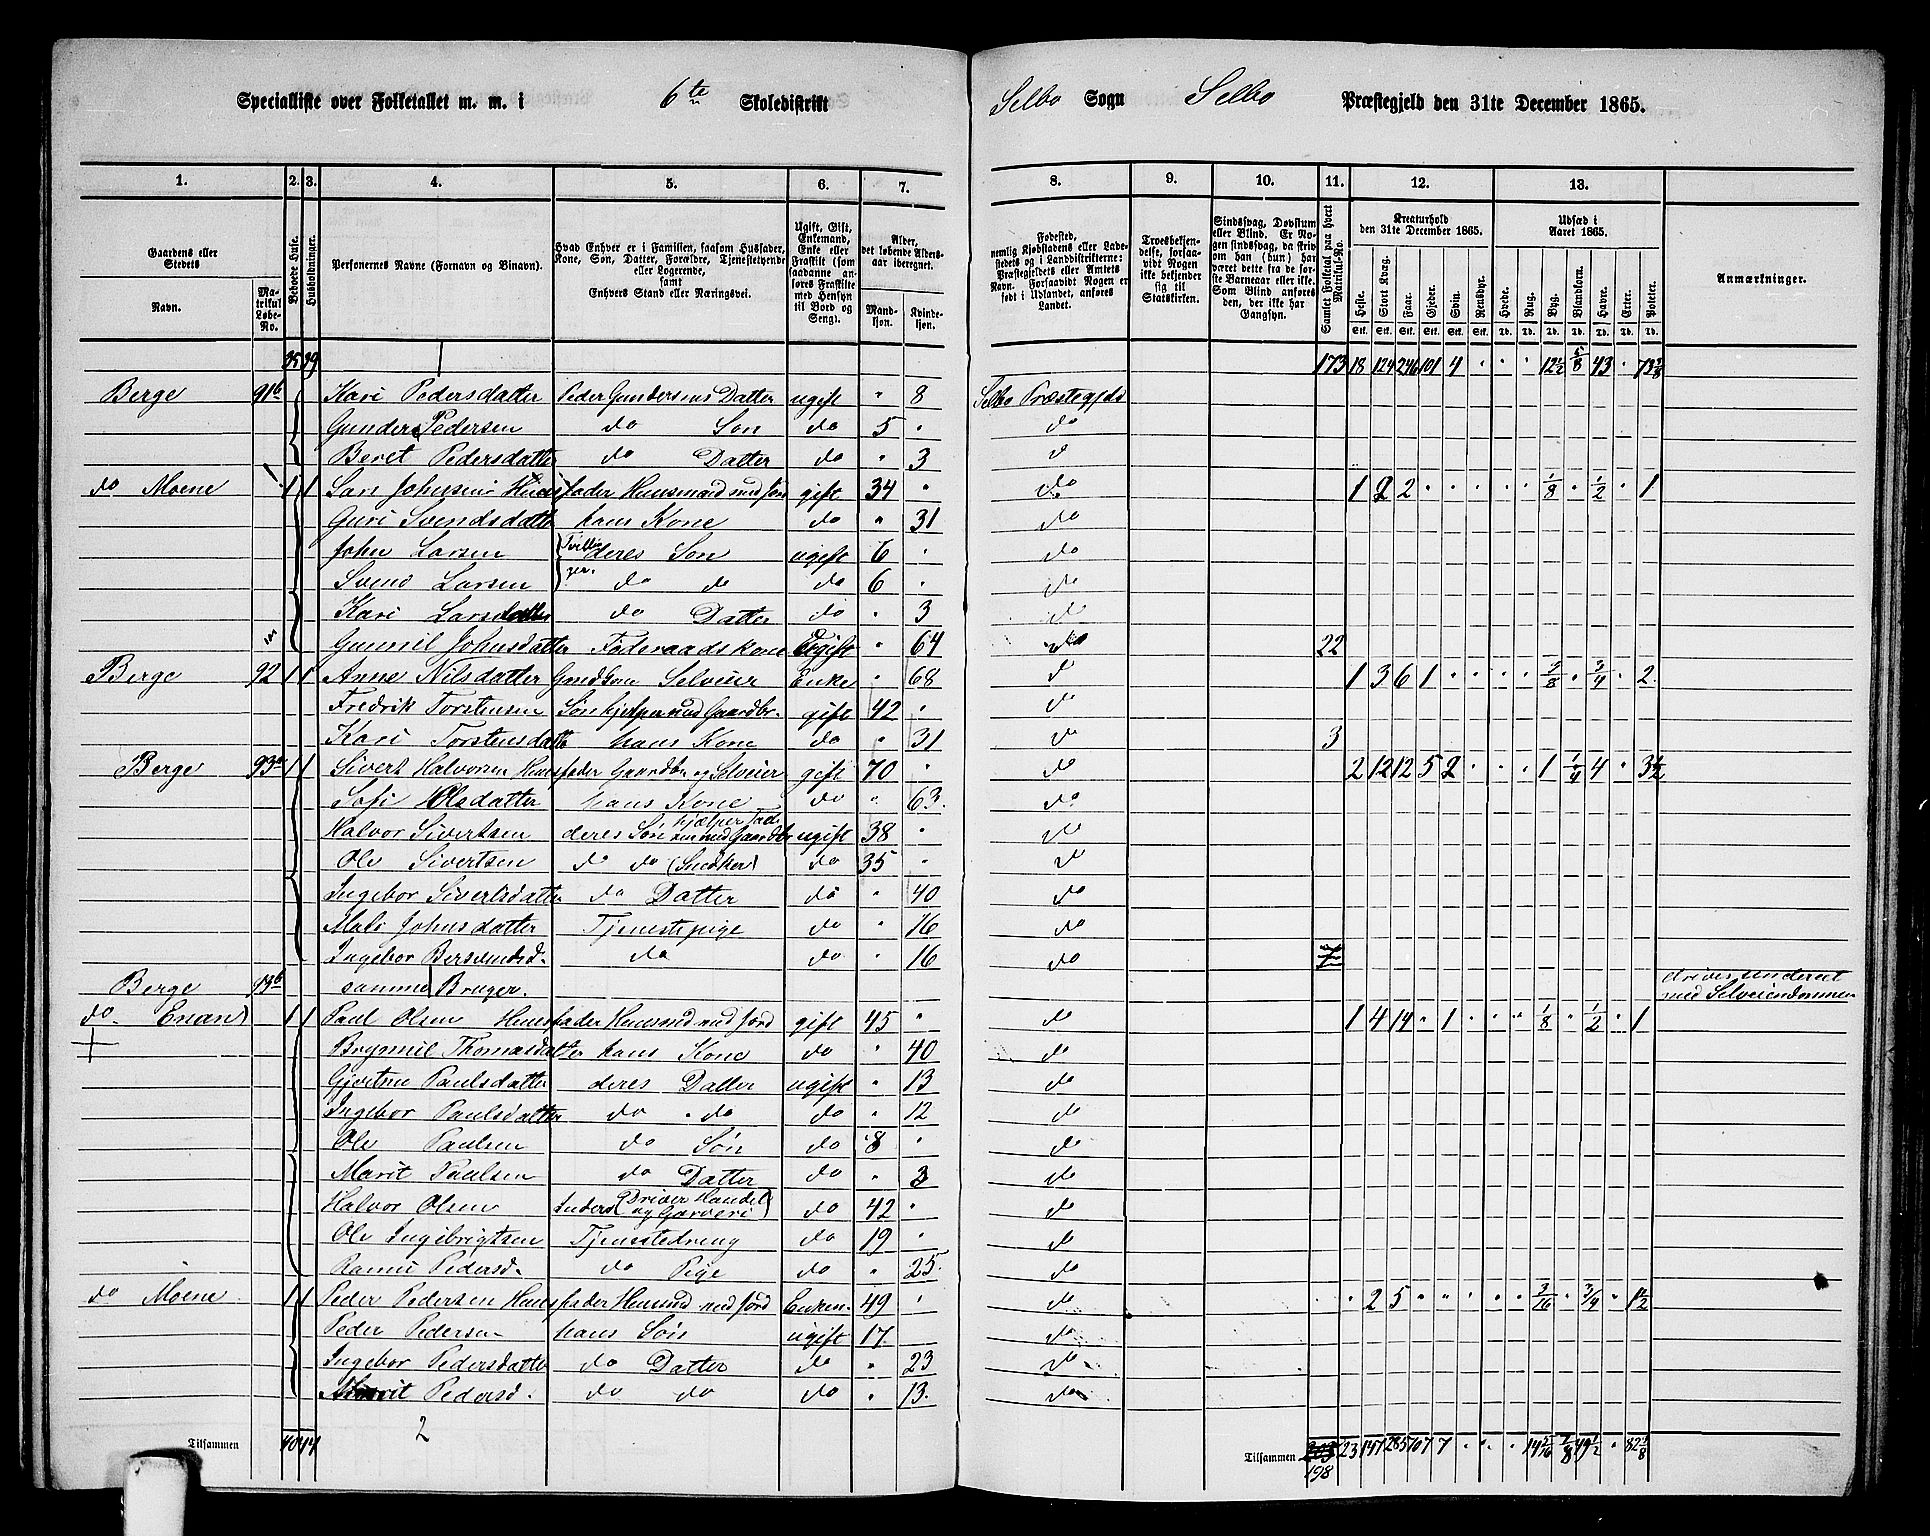 Specialliste over Folketallet m. m. i 6te Skoledistrikt Selbo Sogn Selbo Præstegjeld den 31te December 1865.
1. 2. 3. 4. 5. 6. 7. 8. 9. 10. 11. 12. 13.
Gaardens eller Stedets
Navn.
Matrikul Løbe-No.
Bebodde Huse.
Husholdninger.
Personernes Navne (Fornavn og Binavn).
Hvad Enhver er i Familien, saasom Husfader, Kone, Søn, Datter, Forældre, Tjenestetyende eller Logerende, samt Enhvers Stand eller Næringsvei.
Ugift, Gift, Enkemand, Enke eller Fraskilt (som saadanne anføres Fraskilte med Hensyn til Bord og Seng).
Alder, det løbende Aldersaar iberegnet.
Mandkjøn. Kvindekjøn.
Fødested, nemlig Kjøbstadens eller Ladestedets og i Landdistrikterne: Præstegjeldets eller Amtets Navn. Forsaavidt Nogen er født i Udlandet, anføres Landet.
Troesbekjendelse, forsaavidt Nogen ikke bekjender sig til Statskirken.
Sindssvag, Døvstum eller Blind. Er Nogen sindssvag, da skriv om han (hun) har været dette fra de første Barneaar eller ikke. Som Blind anføres den, der ikke har Gangsyn.
Samlet Folketal paa hvert Matrikul-No.
Kreaturhold den 31te December 1865.
Heste. Stort Kvæg. Faar. Gjeder. Svin. Rensdyr.
Udsæd i Aaret 1865.
Hvede. Rug. Byg. Blandkorn. Havre. Erter. Poteter.
Anmærkninger.
35 39 173 18 124 246 101 4 " " " 12 1/2 5/8 43 " 73 3/8
Berge 91b Kari Pedersdatter Peder Gundersens Datter ugift " 8 Selbo Præstegjeld
Gunder Pedersen do Søn do 5 " do
Beret Pedersdatter do Datter do " 3 d
do Moene 1 1 Lars Johnsen Huusfader Huusmand med Jord gift 34 " do 1 2 2 " " " " " 1/8 " 1/2 " 1
Guri Svendsdatter hans Kone do " 31 do
John Larsen Tvillinger deres Søn ugift 6 " do
Svend Larsen do do do 6 " do
Kari Larsdatter do Datter do " 3 do
Gunnil Johnsdatter Føderaadskone Egift " 64 do 22
Berge 92 1 1 Anne Nilsdatter Gaardbru Selveier Enke " 68 d 1 3 6 1 " " " " 3/8 " 3/4 " 2
Fredrik Torstensen Søn hjelper med Gaardbr. gift 42 " do
Kari Torstensdatter hans Kone do " 31 do 3
Berge 93a 1 1 Sivert Halvorsen Huusfader Gaardbr og Selveier gift 70 " do 2 12 12 5 2 " " " 1 1/4 4 " 3 1/2
Sofi Olsdatter hans Kone do " 63 do
Halvor Sivertsen deres Søn hjælper Faderen med Gaardbr ugift 38 " do
Ole Sivertsen do do (Snedker) do 35 " do
Ingebor Sivertsdatter do Datter do " 40 do
Mali Johnsdatter Tjenestepige do " 16 do
Ingebor Bersvendsd. do do " 16 do 7
Berge 93b samme Bruger. drives underet med Selveiendommen
do Enan 1 1 Paul Olsen Huusfader Huusmd med Jord gift 45 " do 1 4 14 " 1 " " " 1/8 " 1/2 " 1
Brynnil Thomasdatter hans Kone do " 40 do
Gjertrue Paulsdatter deres Datter ugift " 13 do
Ingebor Paulsdatter do do do " 12 do
Ole Paulsen do Søn do 8 " do
Marit Paulsen do Datter do " 3 do
Halvor Olsen Inderst (Driver Handel og Garveri) do 42 " do
Ole Ingebrigtsen Tjenestedreng do 19 " do
Pedersd. do Pige do " 25 do
do Moene 1 1 Peder Pedersen Huusfader Huusmd med Jord Enkem. 49 " do " 2 5 " " " " " 3/16 " 3/4 " 1 1/2
Peder Pedersen hans Søn ugift 17 " do
Ingebor Pedersdatter do Datter do " 23 do
Marit Pedersd. do do do " 13 do
Tilsammen 40 44 2 Tilsammen 203 198 23 147 285 107 7 " " " 14 3/16 7/8 49 1/2 " 82 1/8